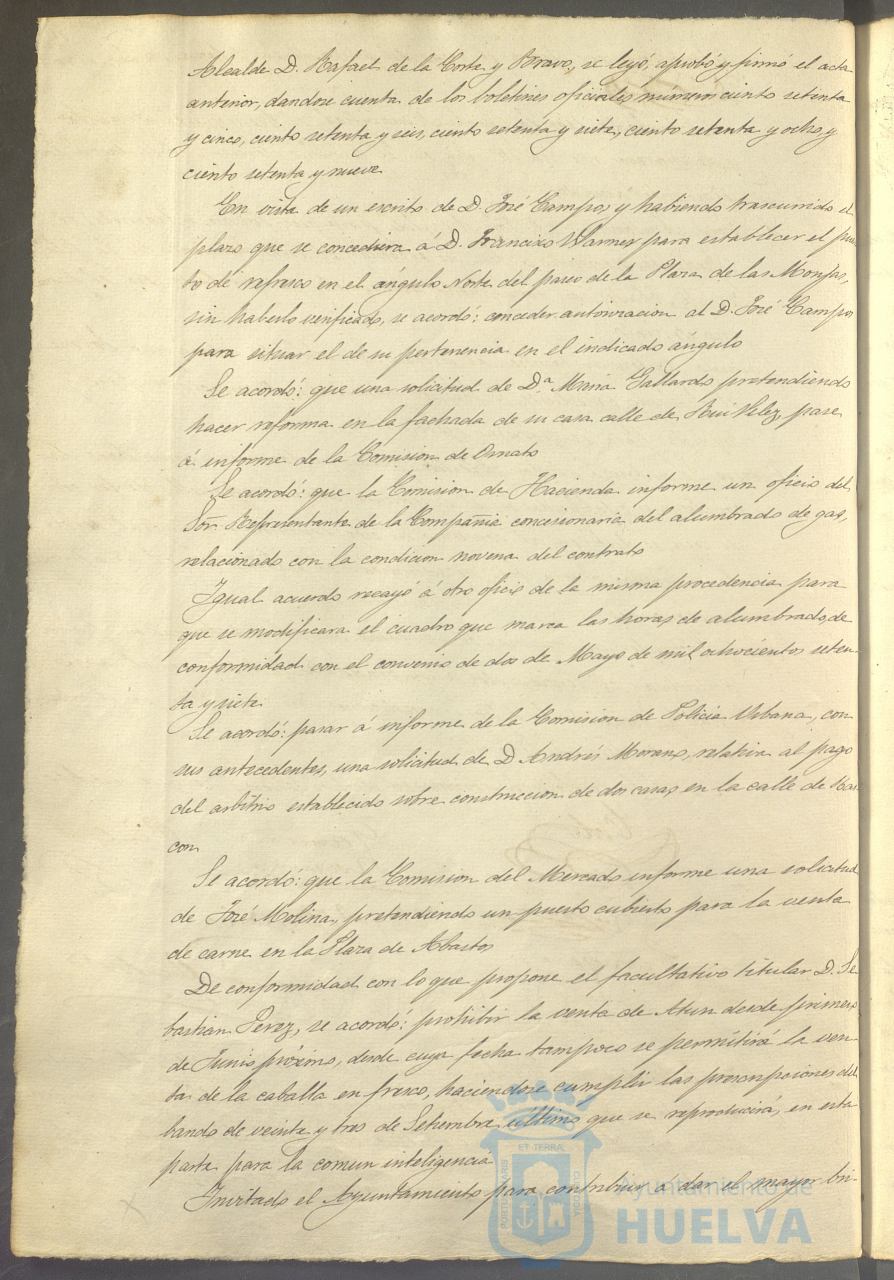 Alcalde D. Rafael de la Corte y Bravo, se leyó, aprobó y firmó el acta
anterior, dandose cuenta de los boletines oficiales número ciento setenta
y cinco, ciento setenta y seis, ciento setenta y siete, ciento setenta y ocho, y
ciento setenta y nueve
En vista de un escrito de D. José Campos y habiendo trascurrido el
plazo que se concediera á D. Francisco Warner para establecer el pues
to de refresco en el ángulo Norte del paseo de la Plaza de las Monjas,
sin haberlo verificado, se acordó: conceder autorizacion al D. José Campos
para situar el de su pertenencia en el indicado ángulo
Se acordó: que una solicitud de Dª. Maria Gallardo pretendiendo
hacer reforma en la fachada de su casa calle de Rui Velez, pase
á informe de la Comision de Ornato
Se acordó: que la Comision de Hacienda informe un oficio del
Sor. Representante de la Compañia concesionaria del alumbrado de gas,
relacionado con la condicion novena del contrato
Igual acuerdo recayó á otro oficio de la misma procedencia para
que se modificara el cuadro que marca las horas de alumbrado, de
conformidad con el convenio de dos de Mayo de mil ochocientos seten-
ta y siete
Se acordó: pasar á informe de la Comision de Policia Urbana, con
sus antecedentes, una solicitud de D Andrés Moreno, relativa al pago
del arbitrio establecido sobre construccion de dos casas en la calle de Ras
con
Se acordó: que la Comision del Mercado informe una solicitud
de José Molina, pretendiendo un puesto cubierto para la venta
de carne en la Plaza de Abastos
De conformidad con lo que propone el facultativo titular D. Se
bastian Perez, se acordó: prohibir la venta de Atun desde primero
de Junio próximo, desde cuya fecha tampoco se permitirá la ven-
ta de la caballa en fresco, haciendose cumplir las prescripciones del
bando de veinte y tres de Setiembre último que se reproducirá, en esta
parte para la comun inteligencia
Invitado el Ayuntamiento para contribuir a dar el mayor bri-
ET TERRA
Ayuntamiento de
HUELVA